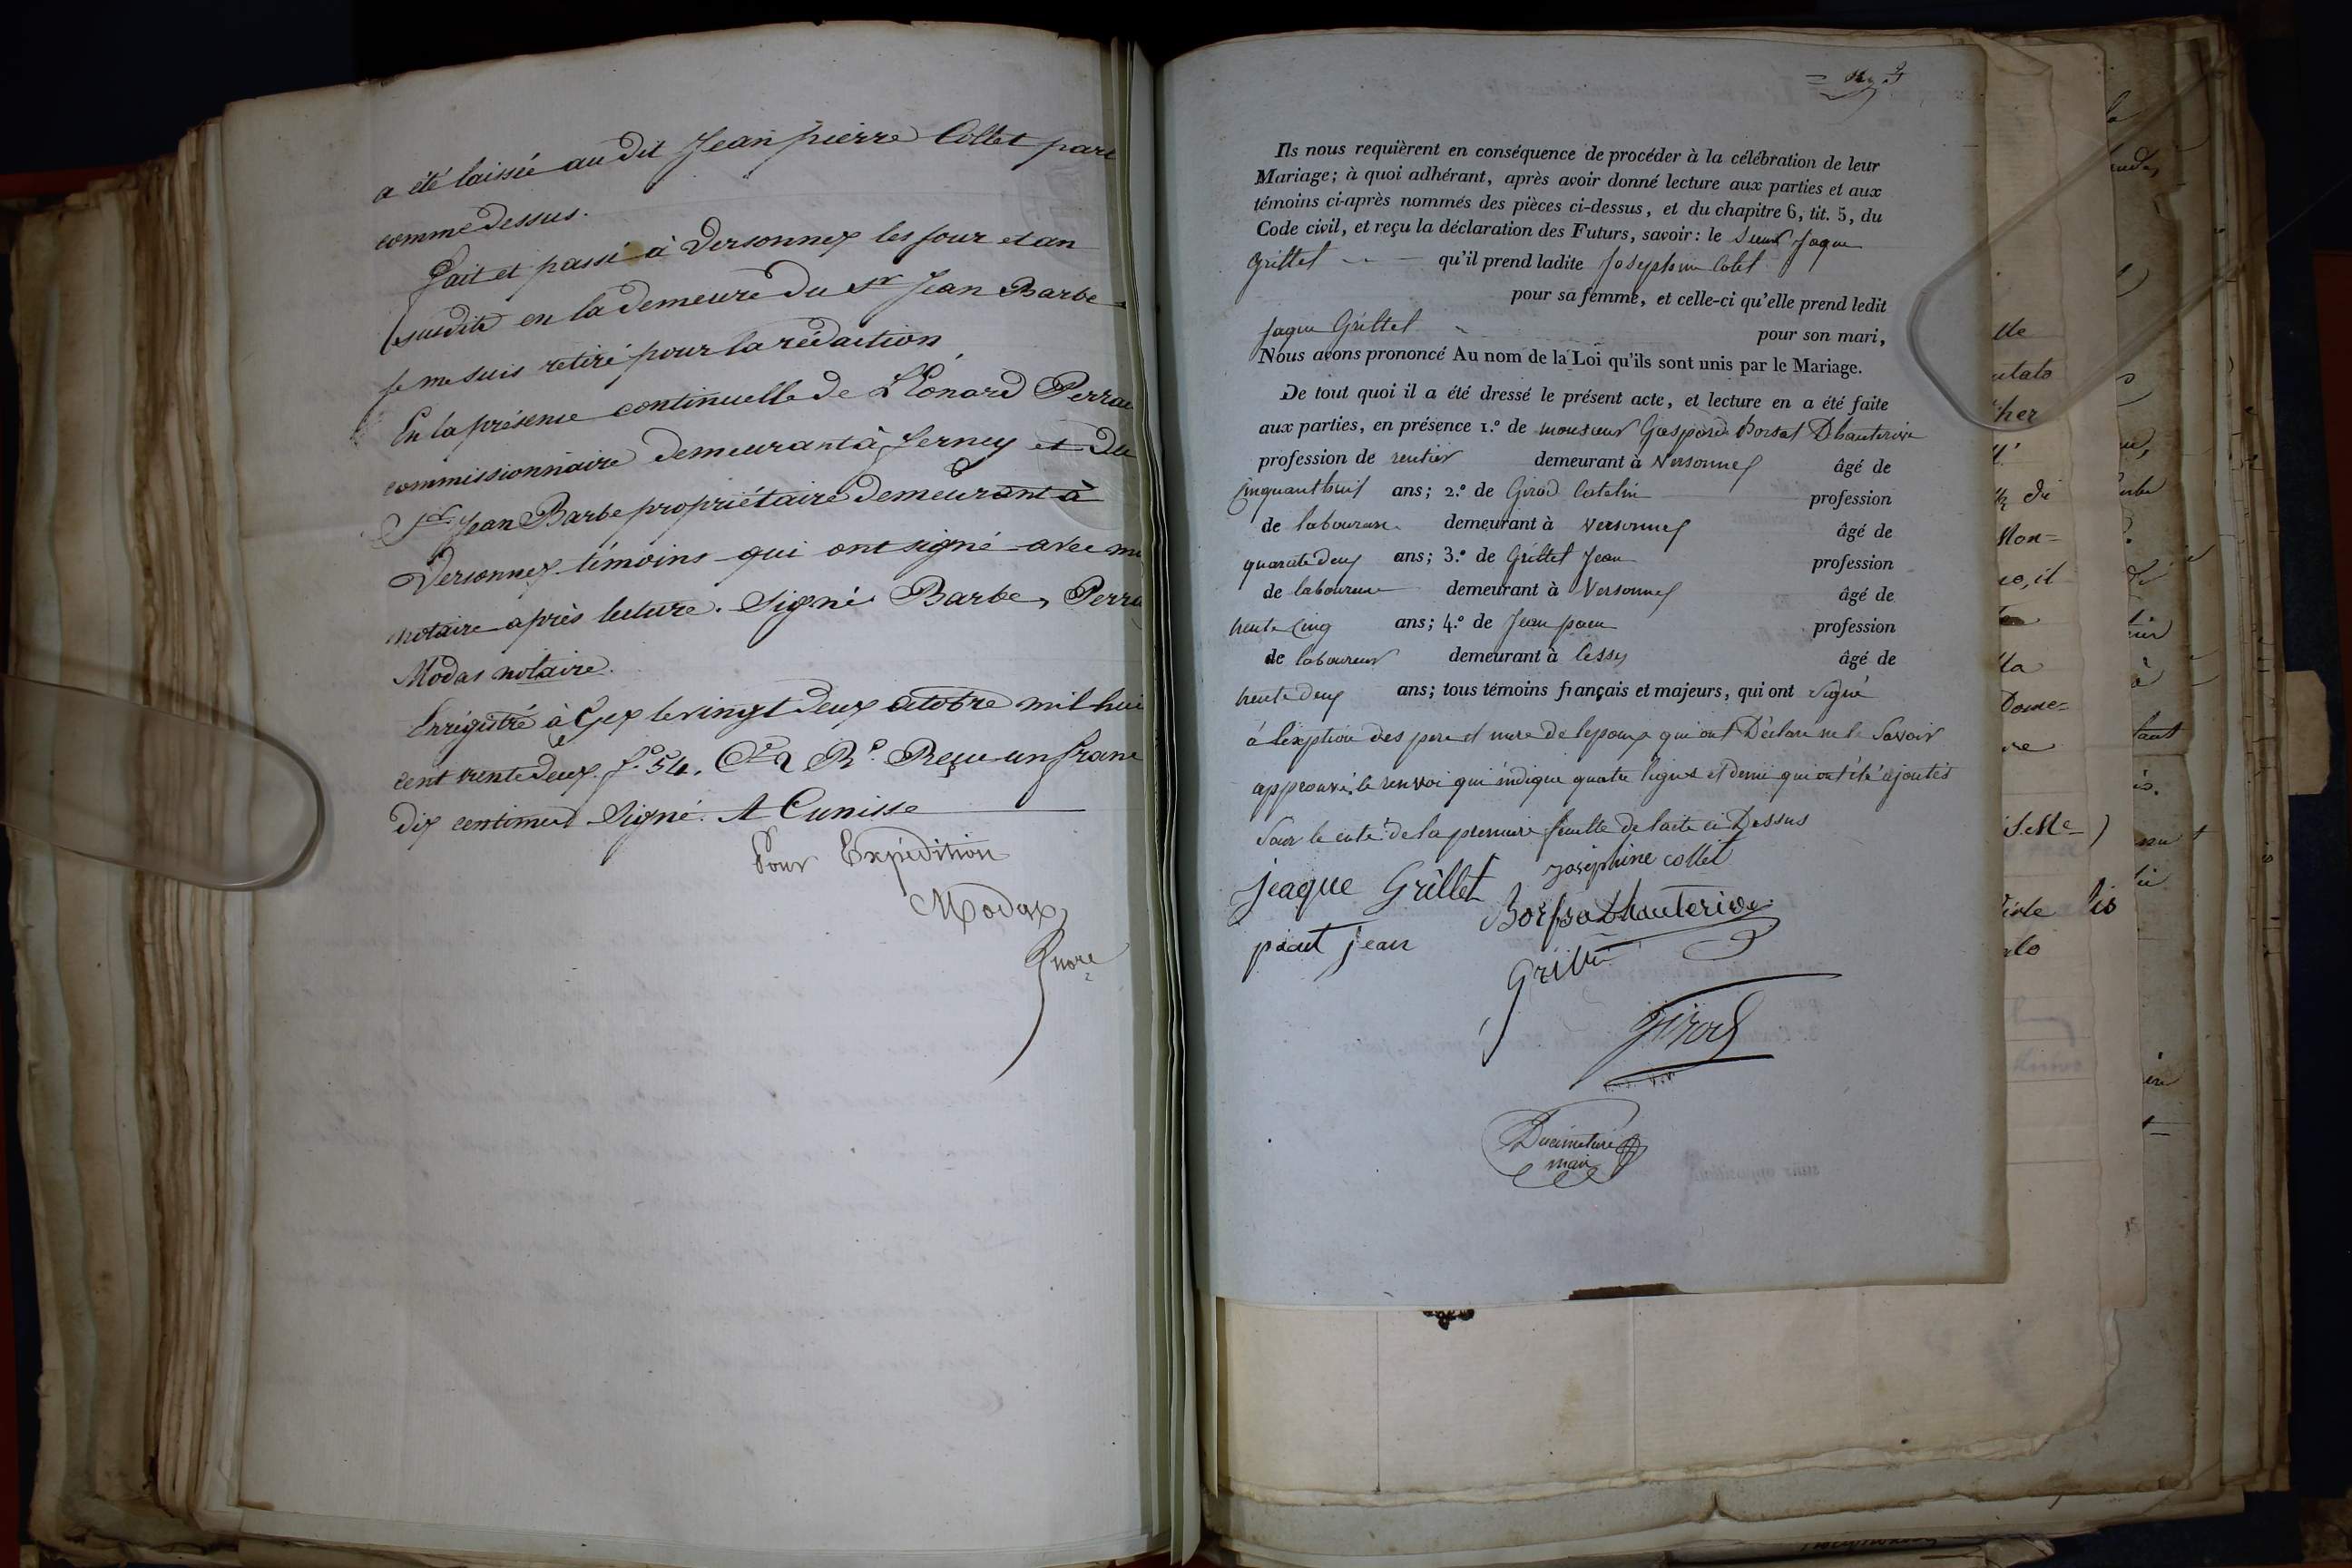 a été laissée au dit Jean pierre Collet pare
comme dessus.
Fait et passé à Versonnex les jour et an
susdits en la demeure du Sr Jean Barbe
je me suis retiré pour la rédaction
En la présence continuelle de Léonard Perra
commissionnaire demeurant à Ferney et du
Sr Jean Barbe propriétaire demeurant à
Versonnex témoins qui ont signé avec m
notaire après lecture. Signé Barbe, Perra
Modas notaire.
Enrégistré à Gex le vingt deux octobre mil hui
cent trente deux. fo. 54. Reçu un franc
dix centimes Signé. A Cunisse
Pour Expédition
Modas
Ils nous requièrent en conséquence de procéder à la célébration de leur
Mariage; à quoi adhérant, après avoir donné lecture aux parties et aux
témoins ci-après nommés des pièces ci-dessus, et du chapitre 6, tit. 5, du
Code civil, et reçu la déclaration des Futurs, savoir: le Sieur Jaque
Grillet qu'il prend ladite Josephine Colet
pour sa femme, et celle-ci qu'elle prend ledit
Jaque Grillet pour son mari,
Nous avons prononcé Au nom de la Loi qu'ils sont unis par le Mariage.
De tout quoi il a été dressé le présent acte, et lecture en a été faite
aux parties, en présence 1.º de monsieur Gaspard Borsat Dhauterive
profession de rentier demeurant à Versonnex âgé de
Cinquant huit ans; 2.º de Girod Catelin profession
de laboureur demeurant à Versonnex âgé de
quarante deux ans; 3.º de Grillet Jean profession
de laboureur demeurant à Versonnex âgé de
trente Cinq ans; 4.º de Jean profession
de laboureur demeurant à Cessy âgé de
trente deux ans; tous témoins français et majeurs, qui ont Signé
à lexption des pere et mere de lepoux qui ont Déclare ne le Savoir
approuvé le renvoi qui indique quatre lignes et demi qui ont été ajoutés
Sour le coté de la premiere feuille de lacte ci Dessus
jeaque Grillet Joséphine collet
Borsat Dhauterive
jean
Grillet
Girod
maire